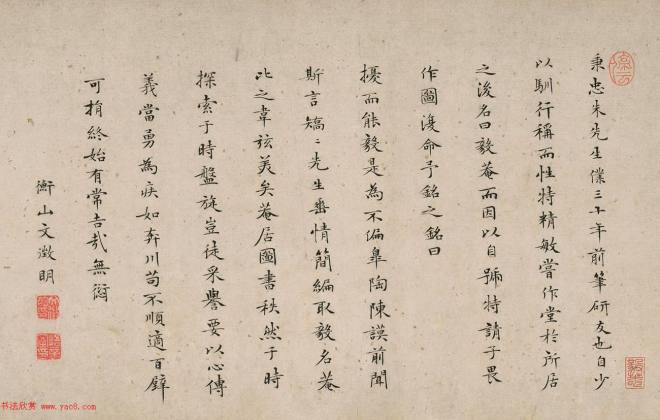 秉忠朱先生僕三十年前筆研友也自少
以馴行稱而性特精敏嘗作堂於所居
之後名曰毅菴而因以自號特請子畏
作圖復命予銘之銘曰
擾而能毅是為不偏皋陶陳謨前聞
斯言矯〻先生垂情簡編取毅名菴
比之韋弦美矣菴居圖書秩然于時
探索于時盤旋豈徒采譽要以心傳
義當勇為疾如奔川苟不順適百辟
可捐終始有常吉哉無愆
衡山文徵明
书法欣赏 www.yac8.com